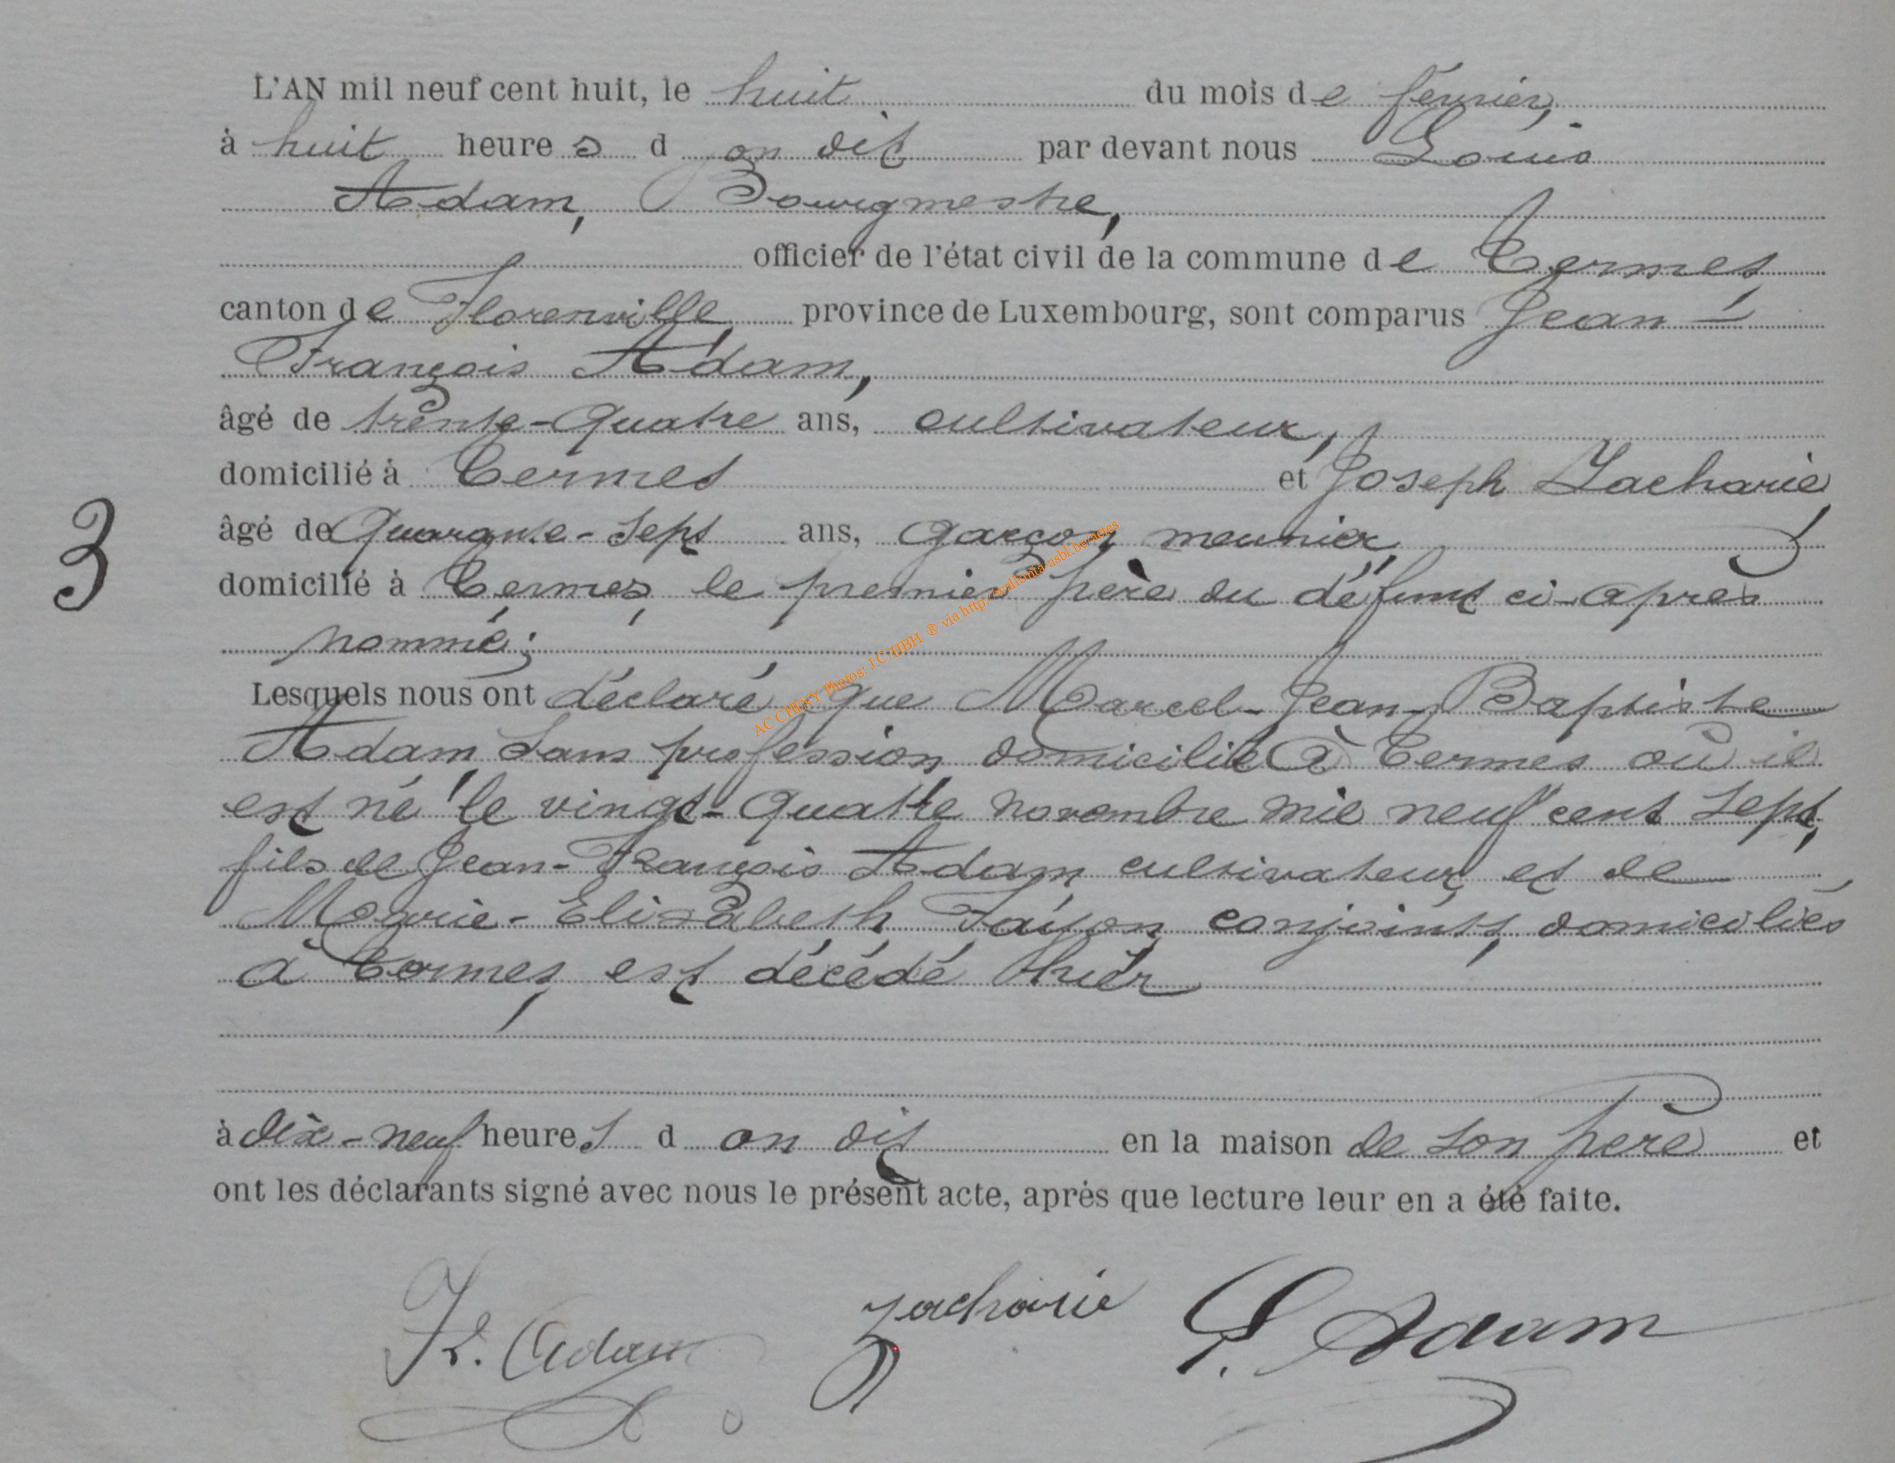 L'AN mil neuf cent huit, le huit du mois de février,
à huit heures d on dit par devant nous Louis
Adam, Bourgmestre,
officier de l'état civil de la commune de Termes,
canton de Florenville, province de Luxembourg, sont comparus Jean-
François Adam,
âgé de trente-quatre ans, cultivateur,
domicilié à Termes et Joseph Zacharie,
3
âgé de quarante-sept ans, garçon meunier,
domicilié à Termes, le premier père du défunt ci-après
nommé;
Lesquels nous ont déclaré que Marcel-Jean-Baptiste
Adam sans profession domicilié à Termes où il
est né le vingt-quatre novembre mil neuf cent sept,
fils de Jean-François Adam cultivateur et de
Marie-Elisabeth conjoints, domiciliés
à Termes, est décédé hier
à dix-neuf heures d on dit en la maison de son père et
ont les déclarants signé avec nous le présent acte, après que lecture leur en a été faite.
Adam zacharie L. Adam